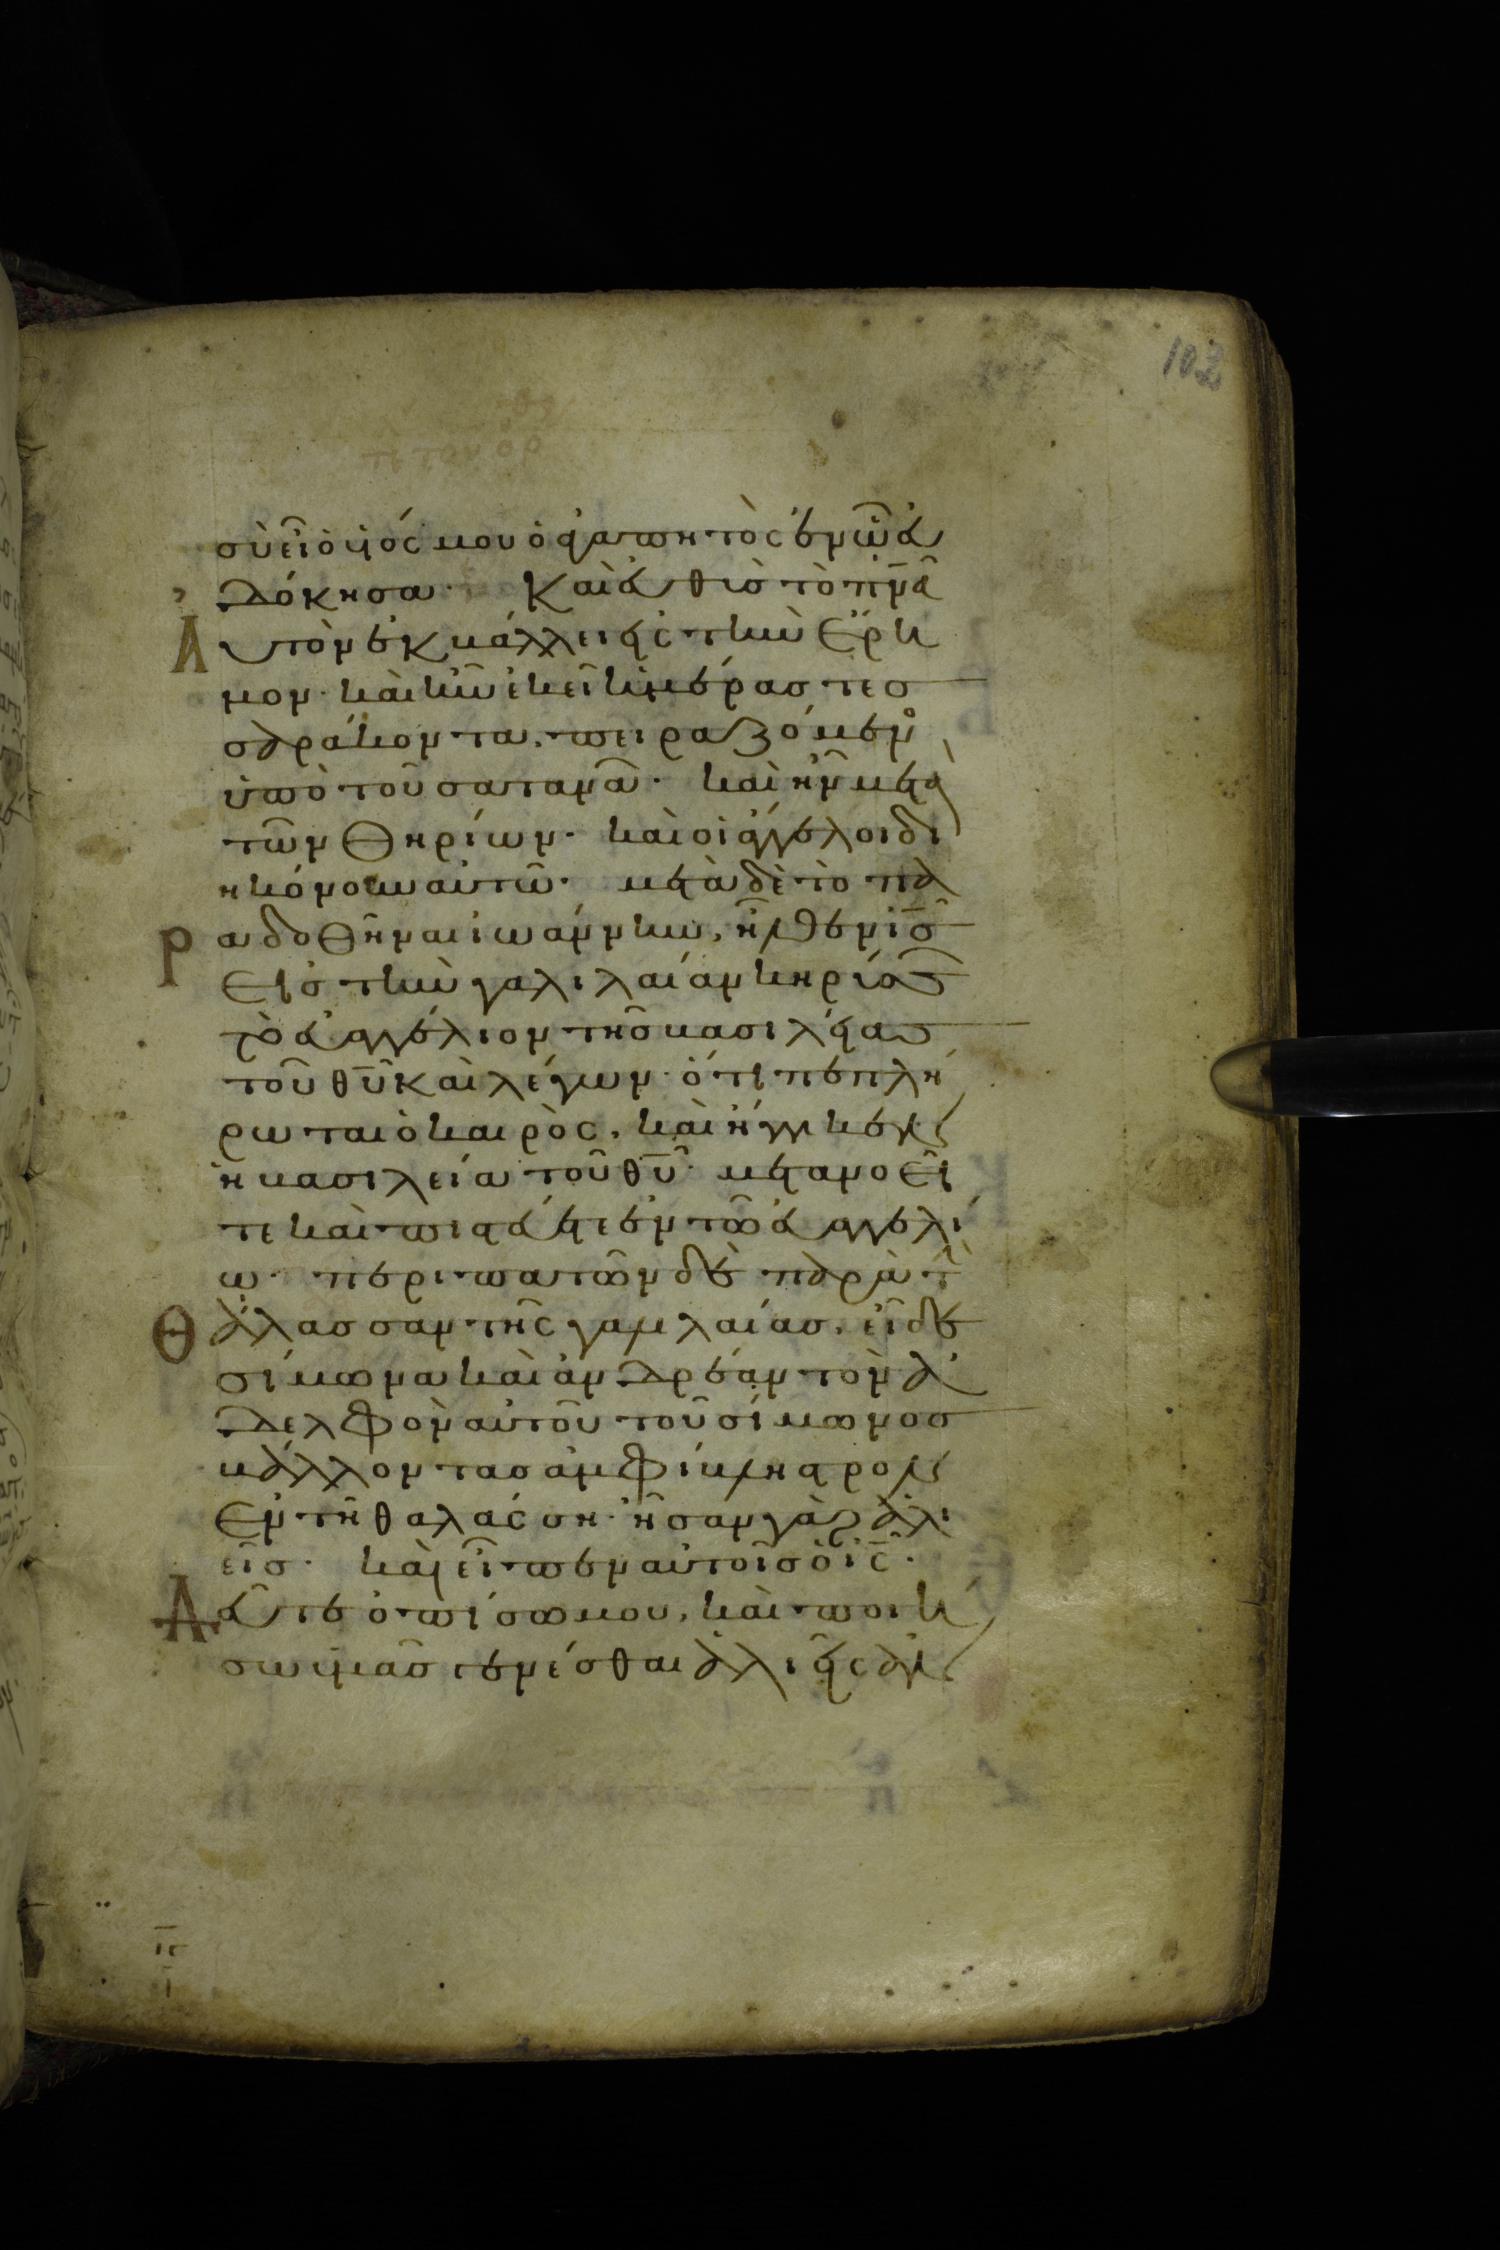 102
σὺ εἶ ὁ υἱός μου ὁ ἀγαπητὸς ἐν ὧ εὐ
δόκησα· Καὶ εὐθὺς τὸ πν̅α
Αυτὸν ἐκβάλλει εἰς τὴν ἔρη
μον· καὶ ἦν ἐκεῖ ἡμέρας τεσ
σαράκοντα, πειραζόμεν
ὑπὸ τοῦ σατανᾶ· καὶ ἦν μετὰ
τῶν θηρίων· καὶ οἱ ἄγγελοι δι
ηκόνουν αὐτῶ· μετὰ δὲ τὸ πα
Ραδοθῆναι ἰωάννην, ἦλθεν ὁ ι̅ς̅
εἰς τὴν γαλιλαίαν κηρύσσ
τὸ εὐαγγέλιον τῆς βασιλείας
τοῦ θ̅υ̅ καὶ λέγων· ὅτι πεπλή
ρωται ὁ καιρὸς, καὶ ἤγγικεν
ἡ βασιλεία τοῦ θ̅υ̅· μετανοεῖ
τε καὶ πιστεύετε ἐν τῶ εὐαγγελί
ω· περιπατῶν δὲ παρὰ τὴ
Θάλασσαν τῆς γαλιλαίας, εἶδε
σίμωνα καὶ ἀνδρέαν τὸν ἀ
δελφὸν αὐτοῦ τοῦ σίμωνος
βάλλοντας ἀμφίβληστρον
ἐν τῆ θαλάσση· ἦσαν γὰρ ἁλι
εῖς· καὶ εἶπεν αὐτοῖς ὁ ι̅ς̅·
Δεῦτε ὀπίσω μου, καὶ ποιή
σω ὑμᾶς γενέσθαι ἁλιεῖς ἀν